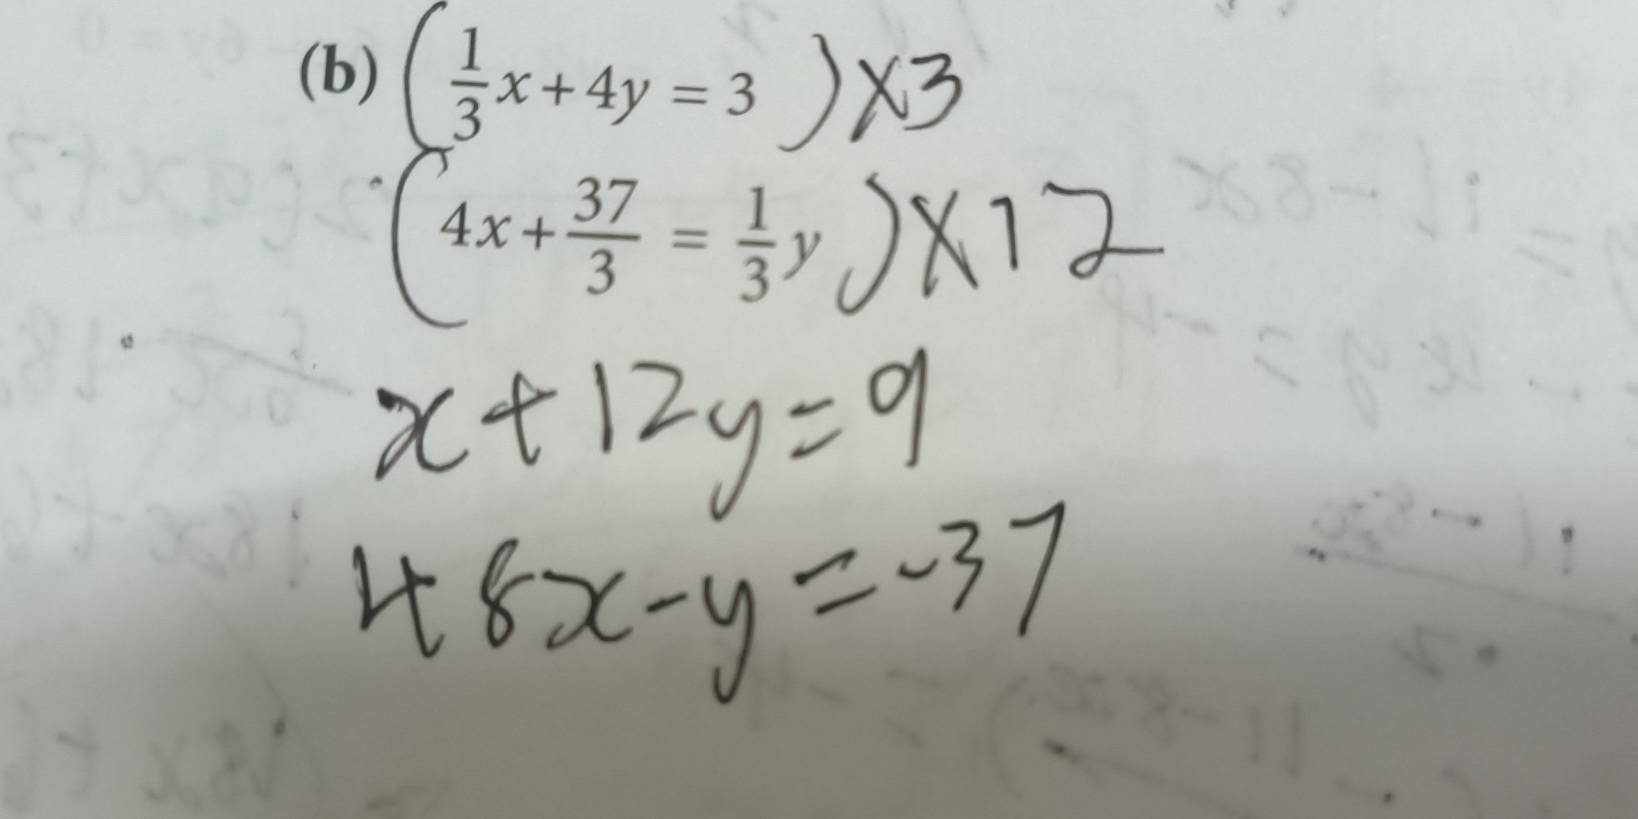 (b) (1/3 x + 4y = 3) ×3
(4x + 37/3 = 1/3 y) ×12
x + 12y = 9
48x - y = -37